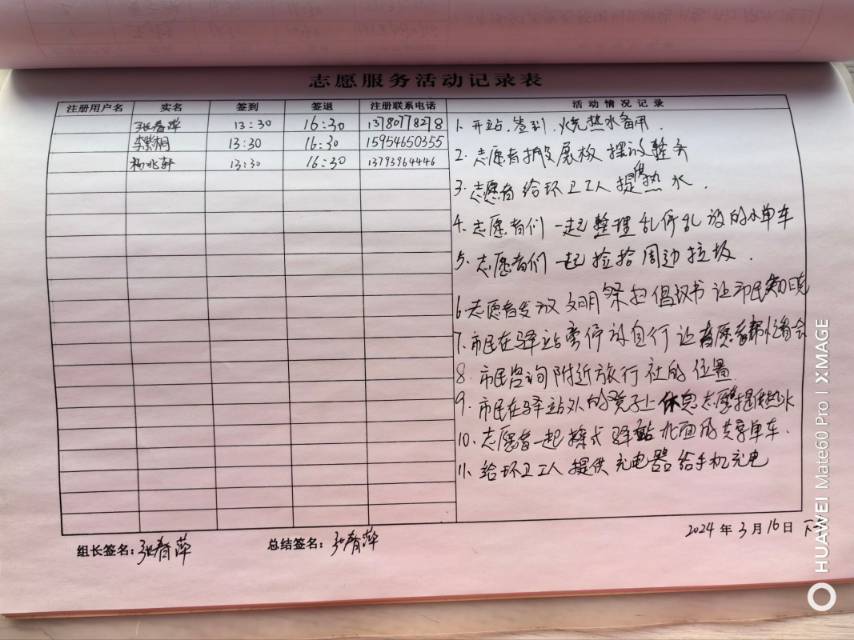 志愿服务活动记录表
注册用户名 实名 签到 签退 注册联系电话 活动情况记录
张春萍 13:30 16:30 13780778278
13:30 16:30 15954650355
杨兆轩 13:30 16:30 13793964446
1. 开站,签到,烧热水备用.
2. 志愿者把展板摆放整齐
3. 志愿者给环卫工人提供热水.
4. 志愿者们一起整理乱停乱放的小单车
5. 志愿者们一起捡拾周边垃圾.
6. 志愿者发放文明祭扫倡议书让市民知晓
7. 市民在驿站旁停放自行让志愿者帮忙看会
8. 市民咨询附近旅行社的位置
9. 市民在驿站外的凳子上休息志愿者提供热水
10. 志愿者一起擦拭驿站北面的共享单车.
11. 给环卫工人提供充电器给手机充电
组长签名:张春萍 总结签名:张春萍 2024年3月16日 下
HUAWEI Mate60 Pro | XMAGE